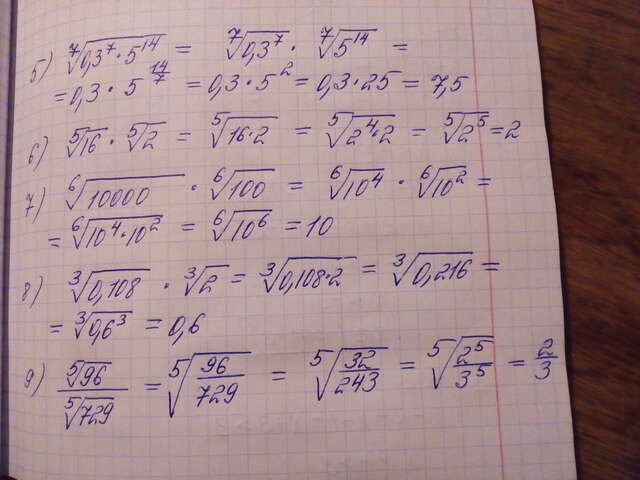 5) ⁷√(0,3⁷·5¹⁴) = ⁷√(0,3⁷) · ⁷√(5¹⁴) =
= 0,3 · 5^(14/7) = 0,3 · 5² = 0,3 · 25 = 7,5
6) ⁵√16 · ⁵√2 = ⁵√(16·2) = ⁵√(2⁴·2) = ⁵√(2⁵) = 2
7) ⁶√10000 · ⁶√100 = ⁶√(10⁴) · ⁶√(10²) =
= ⁶√(10⁴·10²) = ⁶√(10⁶) = 10
8) ³√0,108 · ³√2 = ³√(0,108·2) = ³√0,216 =
= ³√(0,6³) = 0,6
9) ⁵√96 / ⁵√729 = ⁵√(96/729) = ⁵√(32/243) = ⁵√(2⁵/3⁵) = 2/3